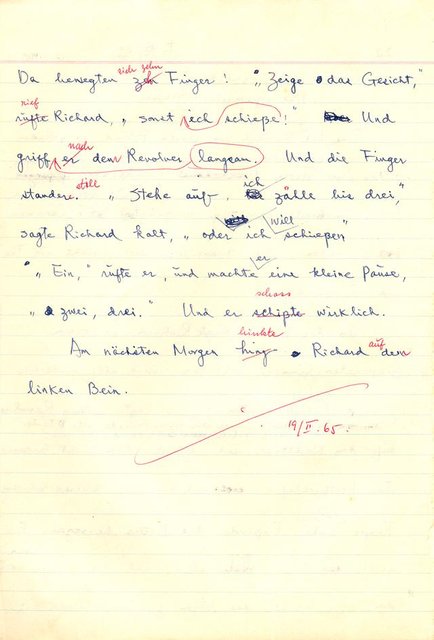 sich zehn
Da bewegten zeh Finger! „Zeige das Gesicht,"
rief
rüfte Richard, „sonst ich schieße!" Und
nach
griff er dem Revolver langsam. Und die Finger
still ich
standen. „Stehe auf, zähle bis drei,"
will
sagte Richard kalt, „oder ich schießen"
er
„Ein," rüfte er, und machte eine kleine Pause,
schoss
„zwei, drei." Und er wirklich.
hinkte auf
Am nächsten Morgen hing Richard dem
linken Bein.
19/II.65.